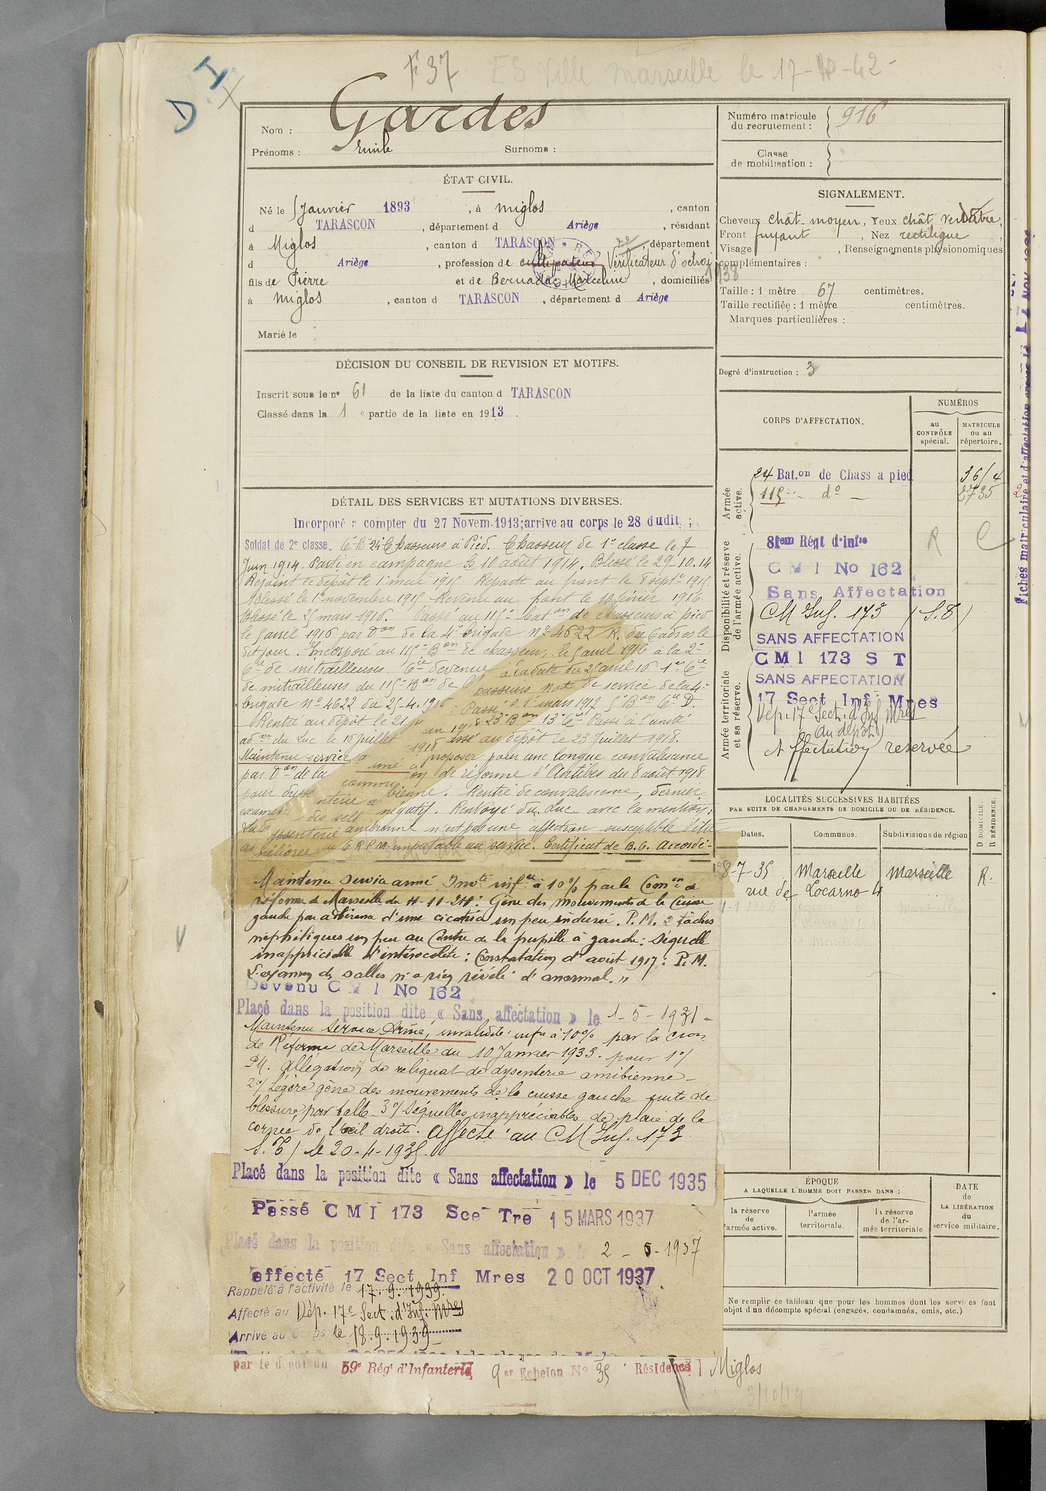 F 37 ES Ville Marseille le 17-
D I
Nom : Gardes
Prénoms : Emile Surnoms :
ÉTAT CIVIL.
Né le 5 Janvier 1893 , à Miglos , canton
d TARASCON , département d Ariège , résidant
à Miglos , canton d TARASCON , département
d Ariège , profession de cultivateur Vérificateur d'octroi
fils de Pierre et de Bernadac Marceline , domiciliés
à Miglos , canton d TARASCON , département d Ariège
Marié le
DÉCISION DU CONSEIL DE REVISION ET MOTIFS.
Inscrit sous le n° 61 de la liste du canton d TARASCON
Classé dans la 1 e partie de la liste en 1913 .
DÉTAIL DES SERVICES ET MUTATIONS DIVERSES.
Incorporé à compter du 27 Novem. 1913; arrivé au corps le 28 dudit ;
Soldat de 2e classe. 24 Chasseurs à Pied. Chasseur de 1e classe le 7
Juin 1914. Parti en campagne le 10 août 1914. Blessé le 29.10.14
Rejoint le dépôt le 1 mai 1915 Reparti au front le 8 septe 1915
Blessé le 1er novembre 1915 Revenu au front le 10 février 1916
Blessé le mars 1916. Passé au 115e Baton de chasseurs à pied
le 5 avril 1916 par Don de la 4e brigade N° 4622 R, du
dit jour. Incorporé au 115e Bon de chasseurs, le 5 avril 1916 à la 2e
Cie de mitrailleuses. Cie devenue à la date du 25 avril 16 1e Cie
de mitrailleuses du 115e Bon de chasseurs Note de service de la 4e
brigade N° 4622 du 25.4.1916. Passé le 1er mars 1917 5e Bon Cie D.
Rentré au dépôt le 23e Bon 13e Cie Passé à l'unité
du Luc le 15 juillet 1918 au dépôt le 23 juillet 1918.
Maintenu service armé à proposer pour une longue convalescence
par Don de la commission de réforme d'Antibes du 8 août 1918
pour dysenterie amibienne. Rentré de convalescence, dernier
examen des selles négatif. Renvoyé du Luc avec la mention :
La dyssenterie amibienne n'est pas une affection susceptible d'être
améliorée imputable au service. Certificat de B.C. Accordé.
Maintenu service armé Invté infre à 10% par la Comon de
réforme de Marseille du 11-11-24 : Gêne des mouvements de la cuisse
gauche par adhérence d'une cicatrice un peu indurée. P.M. 2 tâches
néphéliques un peu au Centre de la pupille à gauche : séquelle
inappréciable d'entérocolite : Constatation d'août 1917 : P.M.
L'examen des selles n'a rien révélé d'anormal. "
Devenu C M I No 162
Placé dans la position dite « Sans affectation » le 1-5-1931-
Maintenu service Armé, invalidité infre à 10% par la Cion
de Réforme de Marseille du 10 Janvier 1933. pour 1°/
P.M. allégation de reliquat de dysenterie amibienne -
2°/ légère gêne des mouvements de la cuisse gauche suite de
blessure par balle 3°/ séquelles inappréciables de plaie de la
cornée de l'œil droit. Affecté au CM Inf. 173
S. T) le 20-4-1935.
Placé dans la position dite « Sans affectation » le 5 DEC 1935
Passé C M I 173 Sce Tre 15 MARS 1937
Placé dans la position dite « Sans affectation » le 2-5-1937
affecté 17 Sect Inf Mres 20 OCT 1937
Rappelé à l'activité le 17.9.1939
Affecté au Dép. 17e Sect. d'Inf. Mres
Arrivé au corps le 18.9.1939
par le dépôt du 59e Régt d'Infanterie 9er Echelon N° 35 Résidence Miglos
Numéro matricule du recrutement : 916
Classe de mobilisation :
SIGNALEMENT.
Cheveux chât. moyen, Yeux chât. verdâtre,
Front fuyant , Nez rectiligne ,
Visage , Renseignements physionomiques
complémentaires :
1938
Taille : 1 mètre 67 centimètres.
Taille rectifiée : 1 mètre centimètres.
Marques particulières :
Degré d'instruction : 3
CORPS D'AFFECTATION.
NUMÉROS
au CONTRÔLE spécial.
MATRICULE ou au répertoire.
Armée active.
24 Bat.on de Chass a pied
115e do
Disponibilité et réserve de l'armée active.
81em Régt d'Infie R C
C M I No 162
Sans Affectation
CM Inf. 173 (S.T)
SANS AFFECTATION
C M I 173 S T
SANS AFFECTATION
Armée territoriale et sa réserve.
17 Sect Inf Mres
Dép. 17e Sect. d'Inf Mres
(Au dépôt)
Affectation réservée
LOCALITÉS SUCCESSIVES HABITÉES
PAR SUITE DE CHANGEMENTS DE DOMICILE OU DE RÉSIDENCE.
Dates. Communes. Subdivisions de région
D DOMICILE. R RÉSIDENCE.
8-7-35 Marseille Marseille R.
rue de Locarno 4
ÉPOQUE
A LAQUELLE L'HOMME DOIT PASSER DANS :
la réserve de l'armée active.
l'armée territoriale.
la réserve de l'armée territoriale
DATE de LA LIBÉRATION du service militaire.
Ne remplir ce tableau que pour les hommes dont les services font
l'objet d'un décompte spécial (engagés, condamnés, omis, etc.)